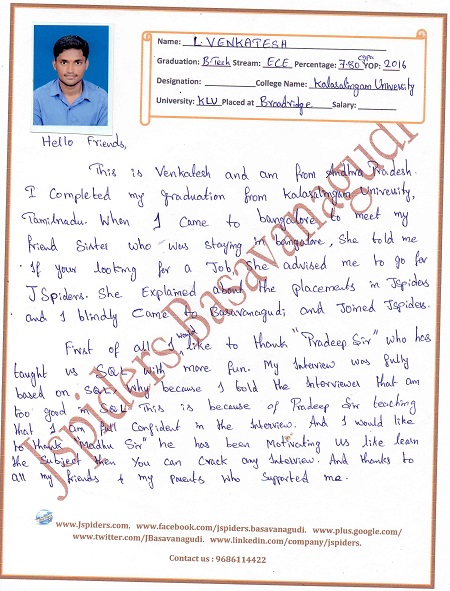 Name: I. VENKATESH
Graduation: B.Tech Stream: ECE Percentage: 7.80 cgpa YOP: 2016
Designation: College Name: Kalasalingam University
University: KLU Placed at Broadridge Salary:
Hello Friends,
This is Venkatesh and am from Andhra Pradesh.
I completed my graduation from Kalasalingam University,
Tamilnadu. When I came to bangalore to meet my
friend Sister who was staying in bangalore, She told me
If your looking for a Job She advised me to go for
JSpiders. She Explained about the placements in Jspiders
and I blindly Came to Basavanagudi and Joined Jspiders.
First of all I would like to thank "Pradeep Sir" who has
taught us SQL with more fun. My Interview was fully
based on SQL. Why because I told the Interviewer that am
too good in SQL. This is because of Pradeep Sir teaching
that I am full Confident in the Interview. And I would like
to thank "Madhu Sir" he has been Motivating us like learn
the Subject then You can Crack any Interview. And thanks to
all my friends & my parents who supported me.
Jspiders Basavanagudi
www.Jspiders.com. www.facebook.com/jspiders.basavanagudi. www.plus.google.com/
www.twitter.com/JBasavanagudi. www.linkedin.com/company/jspiders.
Contact us : 9686114422